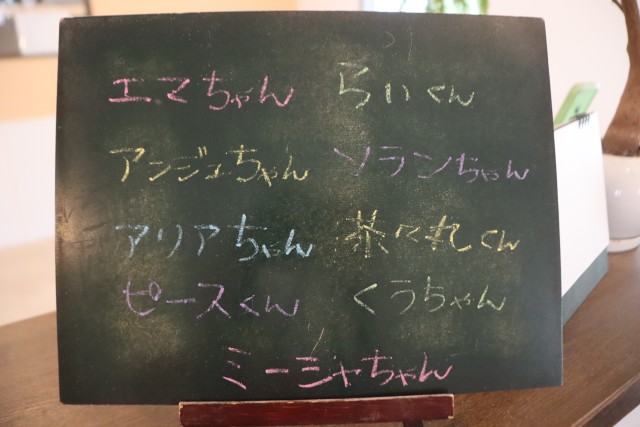 エマちゃん らいくん
アンジュちゃん ソランちゃん
アリアちゃん 茶々丸くん
ピースくん くうちゃん
ミーシャちゃん